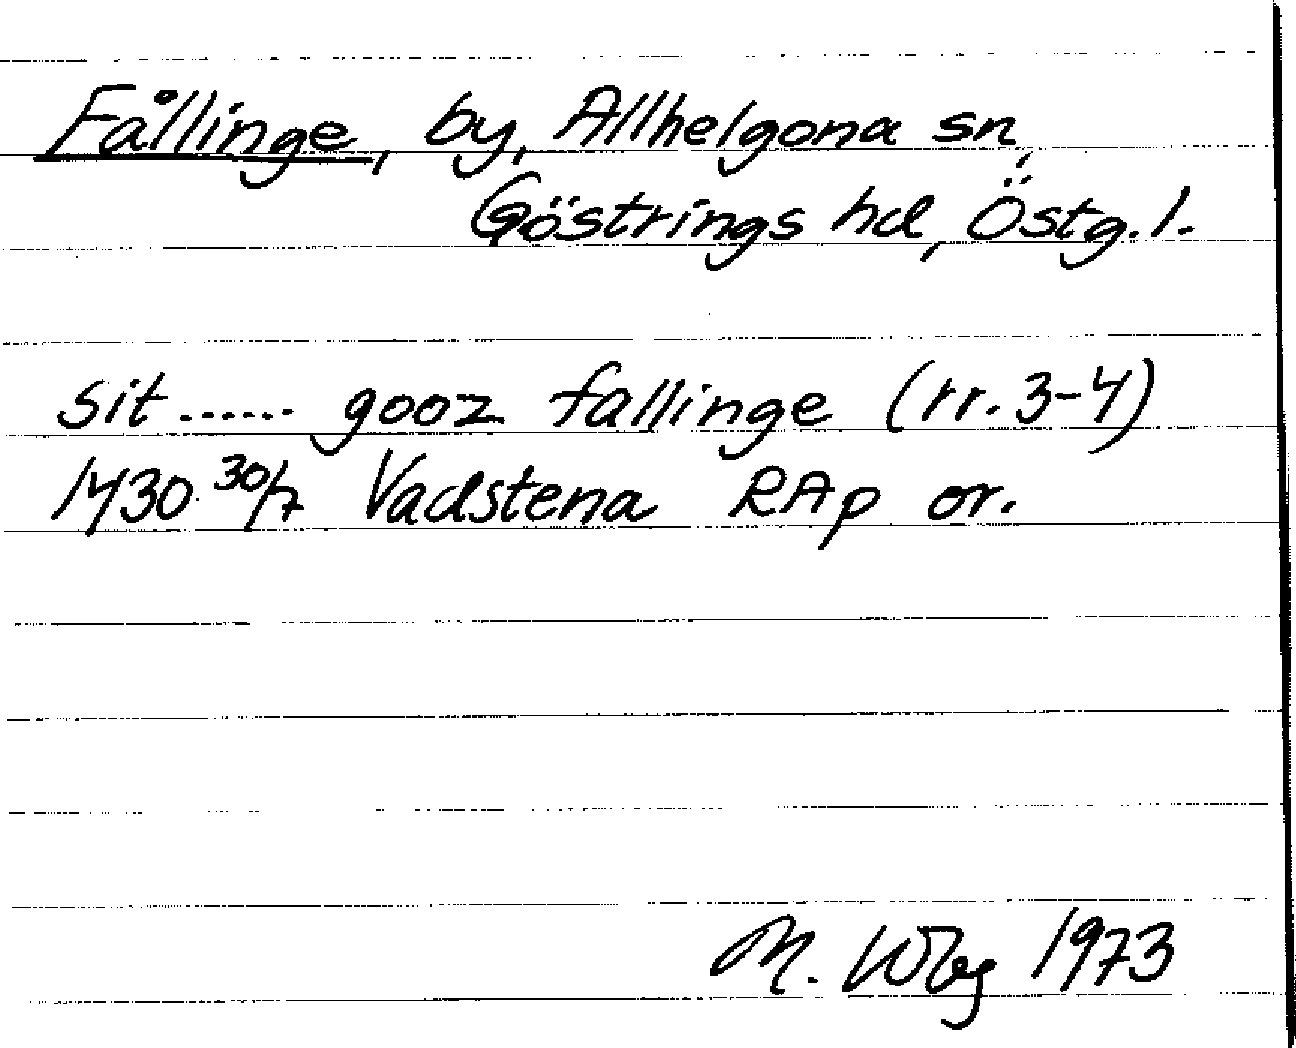 Fållinge, by, Allhelgona sn,
Göstrings hd, Östg. l.
sit ...... gooz fallinge (rr. 3-4)
1430 30/7 Vadstena RAp or.
M. Wbg 1973